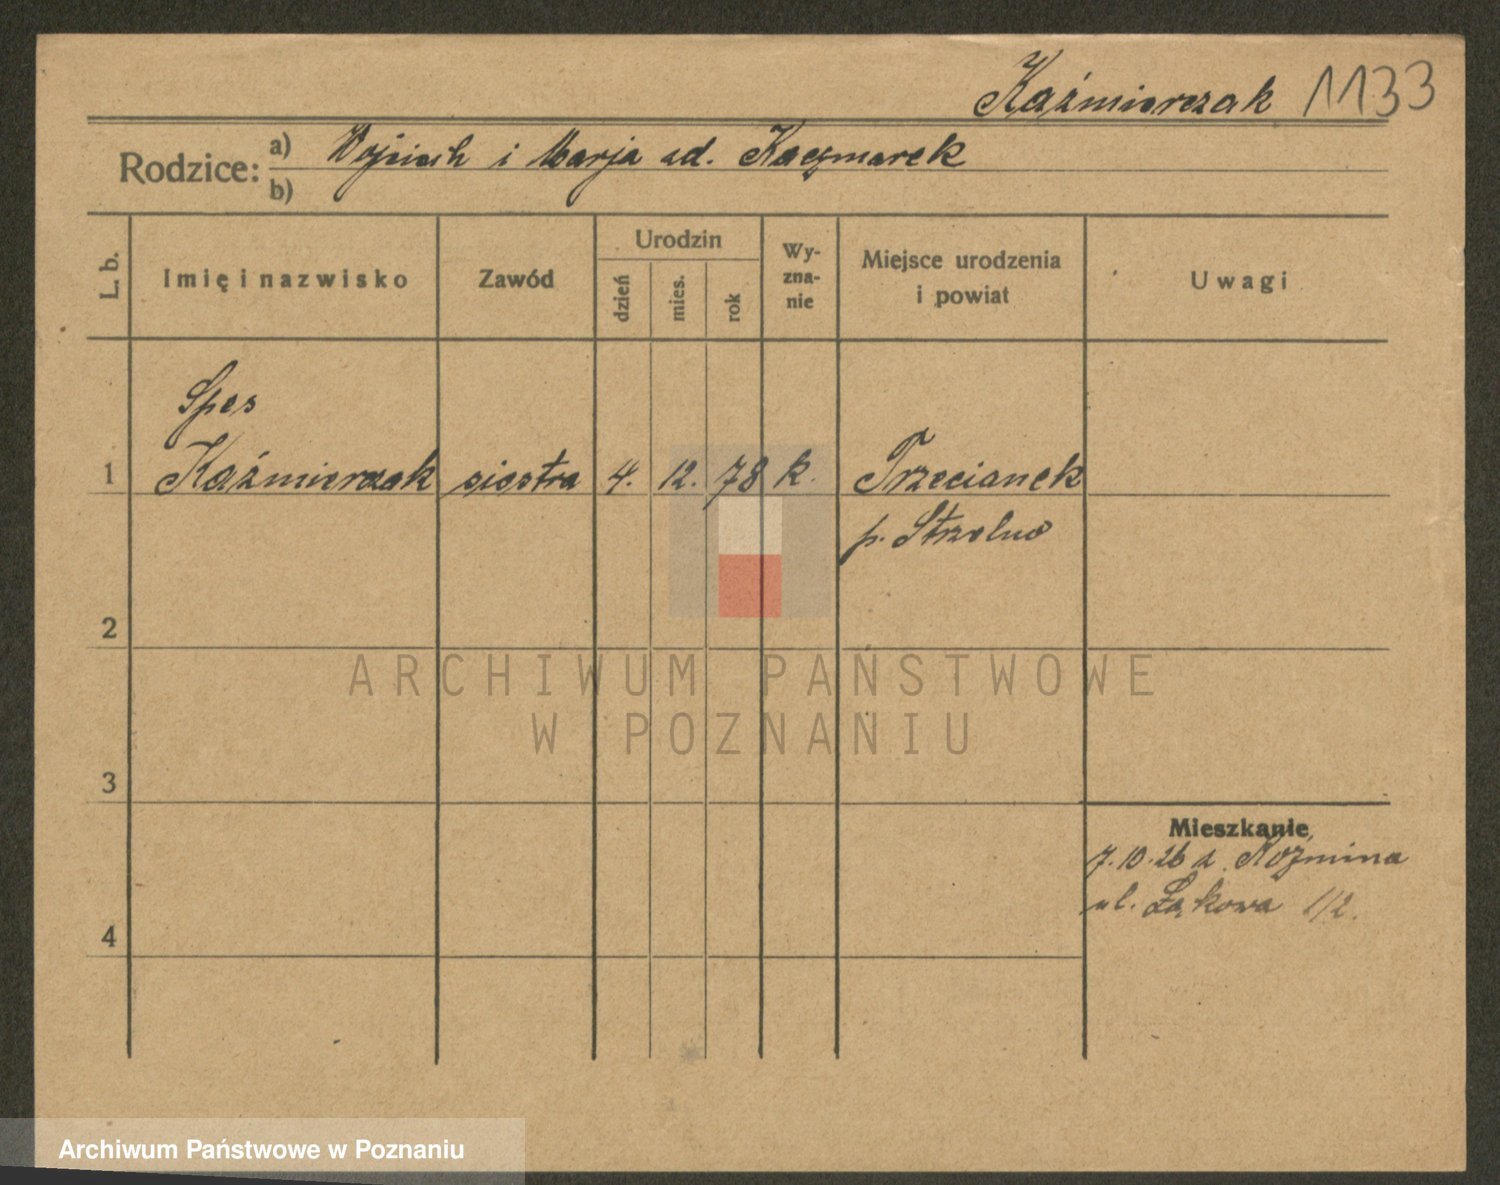 Kaźmierczak 1133
Rodzice: a) Wojciech i Marja ad. Kaczmarek
b)
L. b.
Imię i nazwisko
Zawód
Urodzin
dzień
mies.
rok
Wy-
zna-
nie
Miejsce urodzenia
i powiat
Uwagi
Spes
1 Kaźmierczak siostra 4. 12. 78 k. Trzecianek
p. Strzelno
2
ARCHIWUM PAŃSTWOWE
W POZNANIU
3
Mieszkanie
7.10.26 z Koźmina
ul. Łąkowa 1/2.
4
Archiwum Państwowe w Poznaniu